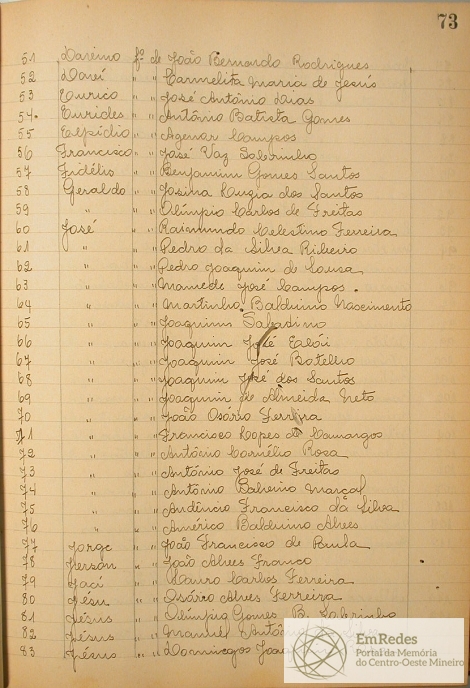 73
51 Darcino fº de João Bernardo Rodrigues
52 Davi " " Carmelita Maria de Jesús
53 Eurico " " José António Dias
54. Eurides " " António Batista Gomes
55 Elpídio " " Agenor Campos
56 Francisco " " José Vaz Sobrinho
57 Fidélis " " Benjamim Gomes Santos
58 Geraldo " " Josina Luzia dos Santos
59 " " " Olímpio Carlos de Freitas
60 José " " Raimundo Celestino Ferreira
61 " " " Pedro da Silva Ribeiro
62 " " " Pedro Joaquim de Sousa
63 " " " Mamede José Campos.
64 " " " Martinho Balduino Nascimento
65 " " " Joaquim Sabadino
66 " " " Joaquim José
67 " " " Joaquim José Botelho
68 " " " Joaquim José dos Santos
69 " " " Joaquim de Almeida Neto
70 " " " João Osório Ferreira
71 " " " Francisco Lopes de Camargos
72 " " " António Cornélio Rosa
73 " " " António José de Freitas
74 " " " António Marçal
75 " " " Francisco da Silva
76 " " " Américo Balduino Alves
77 Jorge " " João Francisco de Paula
78 Jerson " " João Alves Franco
79 Jací " " Lauro Carlos Ferreira
80 Jésu " " Osório Alves Ferreira
81 Jésus " " Olímpio Gomes B. Sobrinho
82 Jésus " " Manuel António
83 Jésus " " Domingos
EmRedes
Portal da Memória
do Centro-Oeste Mineiro